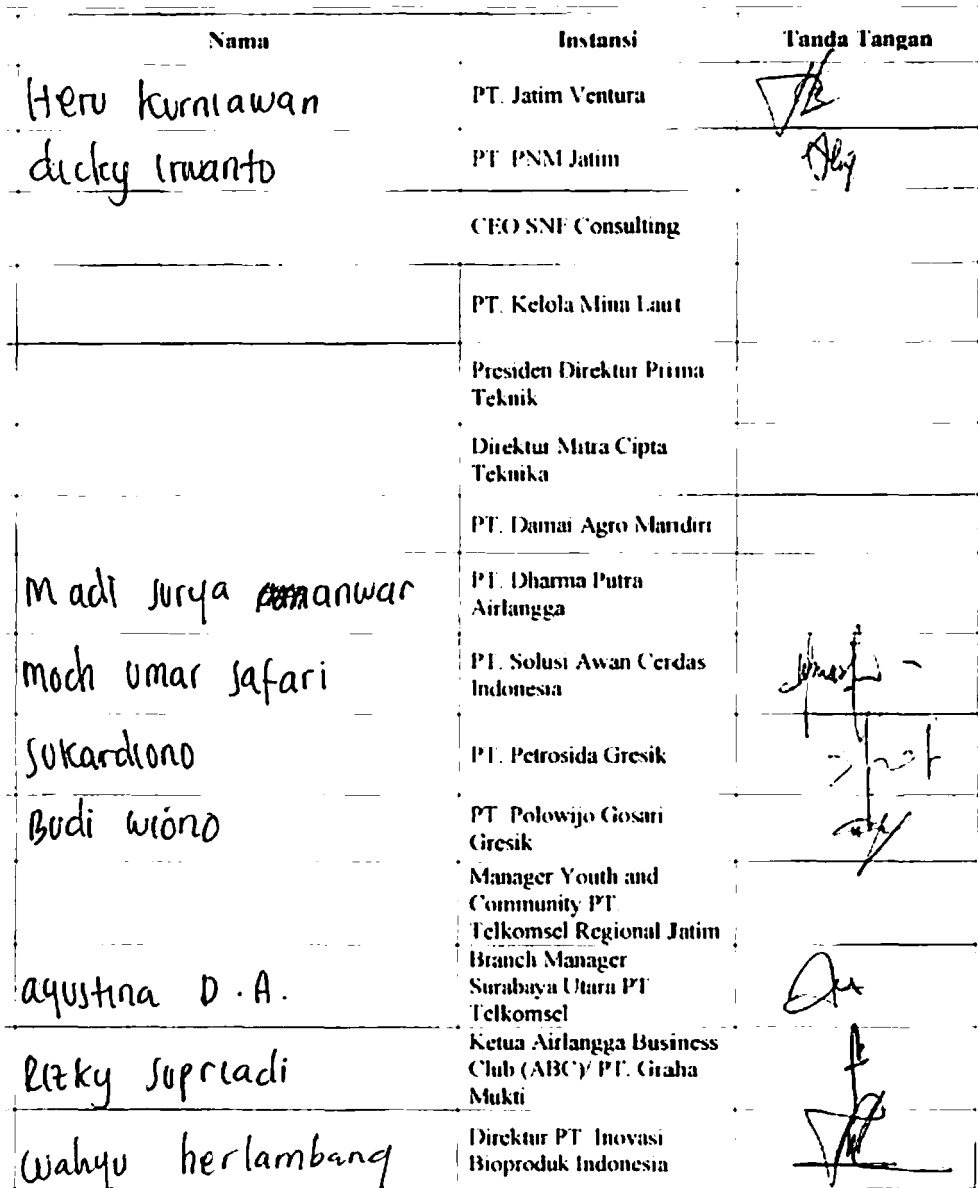 Nama Instansi Tanda Tangan
Heru Kurniawan PT. Jatim Ventura
dicky irwanto PT PNM Jatim
CEO SNF Consulting
PT. Kelola Mina Laut
Presiden Direktur Prima
Teknik
Direktur Mitra Cipta
Teknika
PT. Damai Agro Mandiri
Madi surya anwar PT. Dharma Putra
Airlangga
moch umar safari PT. Solusi Awan Cerdas
Indonesia
sukardiono PT. Petrosida Gresik
Budi wiono PT Polowijo Gosari
Gresik
Manager Youth and
Community PT
Telkomsel Regional Jatim
agustina D.A. Branch Manager
Surabaya Utara PT
Telkomsel
Rizky supriadi Ketua Airlangga Business
Club (ABC)/ PT. Graha
Mukti
wahyu herlambang Direktur PT Inovasi
Bioproduk Indonesia